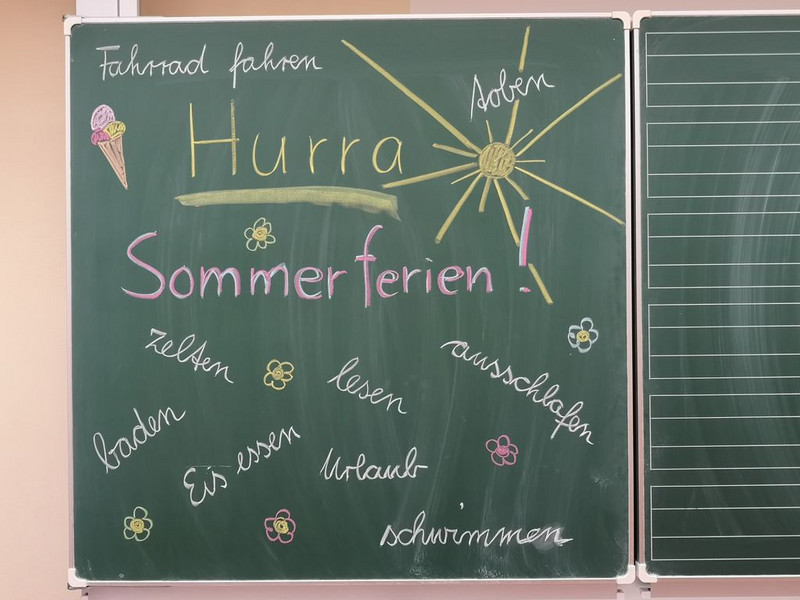 Fahrrad fahren
toben
Hurra
Sommerferien!
zelten
lesen
ausschlafen
baden
Eis essen
Urlaub
schwimmen